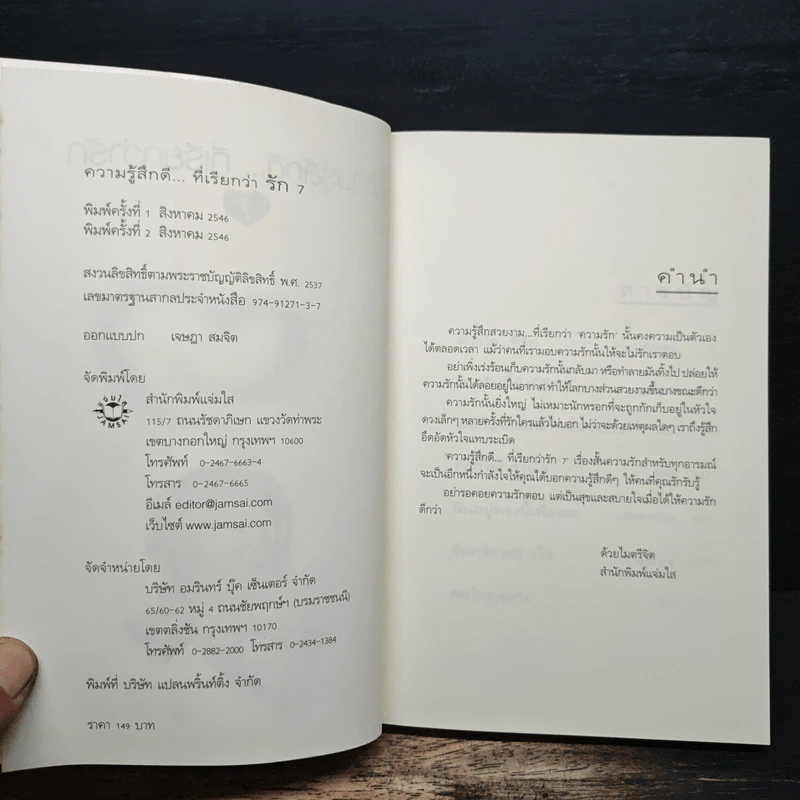 ความรู้สึกดี... ที่เรียกว่า รัก 7
พิมพ์ครั้งที่ 1 สิงหาคม 2546
พิมพ์ครั้งที่ 2 สิงหาคม 2546
สงวนลิขสิทธิ์ตามพระราชบัญญัติลิขสิทธิ์ พ.ศ. 2537
เลขมาตรฐานสากลประจำหนังสือ 974-91271-3-7
ออกแบบปก เจษฎา สมจิต
จัดพิมพ์โดย
JAMSAI
สำนักพิมพ์แจ่มใส
115/7 ถนนรัชดาภิเษก แขวงวัดท่าพระ
เขตบางกอกใหญ่ กรุงเทพฯ 10600
โทรศัพท์ 0-2467-6663-4
โทรสาร 0-2467-6665
อีเมล์ editor@jamsai.com
เว็บไซต์ www.jamsai.com
จัดจำหน่ายโดย
บริษัท อมรินทร์ บุ๊ค เซ็นเตอร์ จำกัด
65/60-62 หมู่ 4 ถนนชัยพฤกษ์ฯ (บรมราชชนนี)
เขตตลิ่งชัน กรุงเทพฯ 10170
โทรศัพท์ 0-2882-2000 โทรสาร 0-2434-1384
พิมพ์ที่ บริษัท แปลนพริ้นท์ติ้ง จำกัด
ราคา 149 บาท
คำนำ
ความรู้สึกสวยงาม...ที่เรียกว่า 'ความรัก' นั้นคงความเป็นตัวเอง
ได้ตลอดเวลา แม้ว่าคนที่เรามอบความรักนั้นให้จะไม่รักเราตอบ
อย่าเพิ่งเร่งร้อนเก็บความรักนั้นกลับมา หรือทำลายมันทิ้งไป ปล่อยให้
ความรักนั้นได้ลอยอยู่ในอากาศ ทำให้โลกบางส่วนสวยงามขึ้นบางขณะดีกว่า
ความรักนั้นยิ่งใหญ่ ไม่เหมาะนักหรอกที่จะถูกกักเก็บอยู่ในหัวใจ
ดวงเล็กๆ หลายครั้งที่รักใครแล้วไม่บอก ไม่ว่าจะด้วยเหตุผลใดๆ เราถึงรู้สึก
อึดอัดหัวใจแทบระเบิด
'ความรู้สึกดี... ที่เรียกว่ารัก 7' เรื่องสั้นความรักสำหรับทุกอารมณ์
จะเป็นอีกหนึ่งกำลังใจให้คุณได้บอกความรู้สึกดีๆ ให้คนที่คุณรักรับรู้
อย่ารอคอยความรักตอบ แต่เป็นสุขและสบายใจเมื่อได้ให้ความรัก
ดีกว่า
ด้วยไมตรีจิต
สำนักพิมพ์แจ่มใส